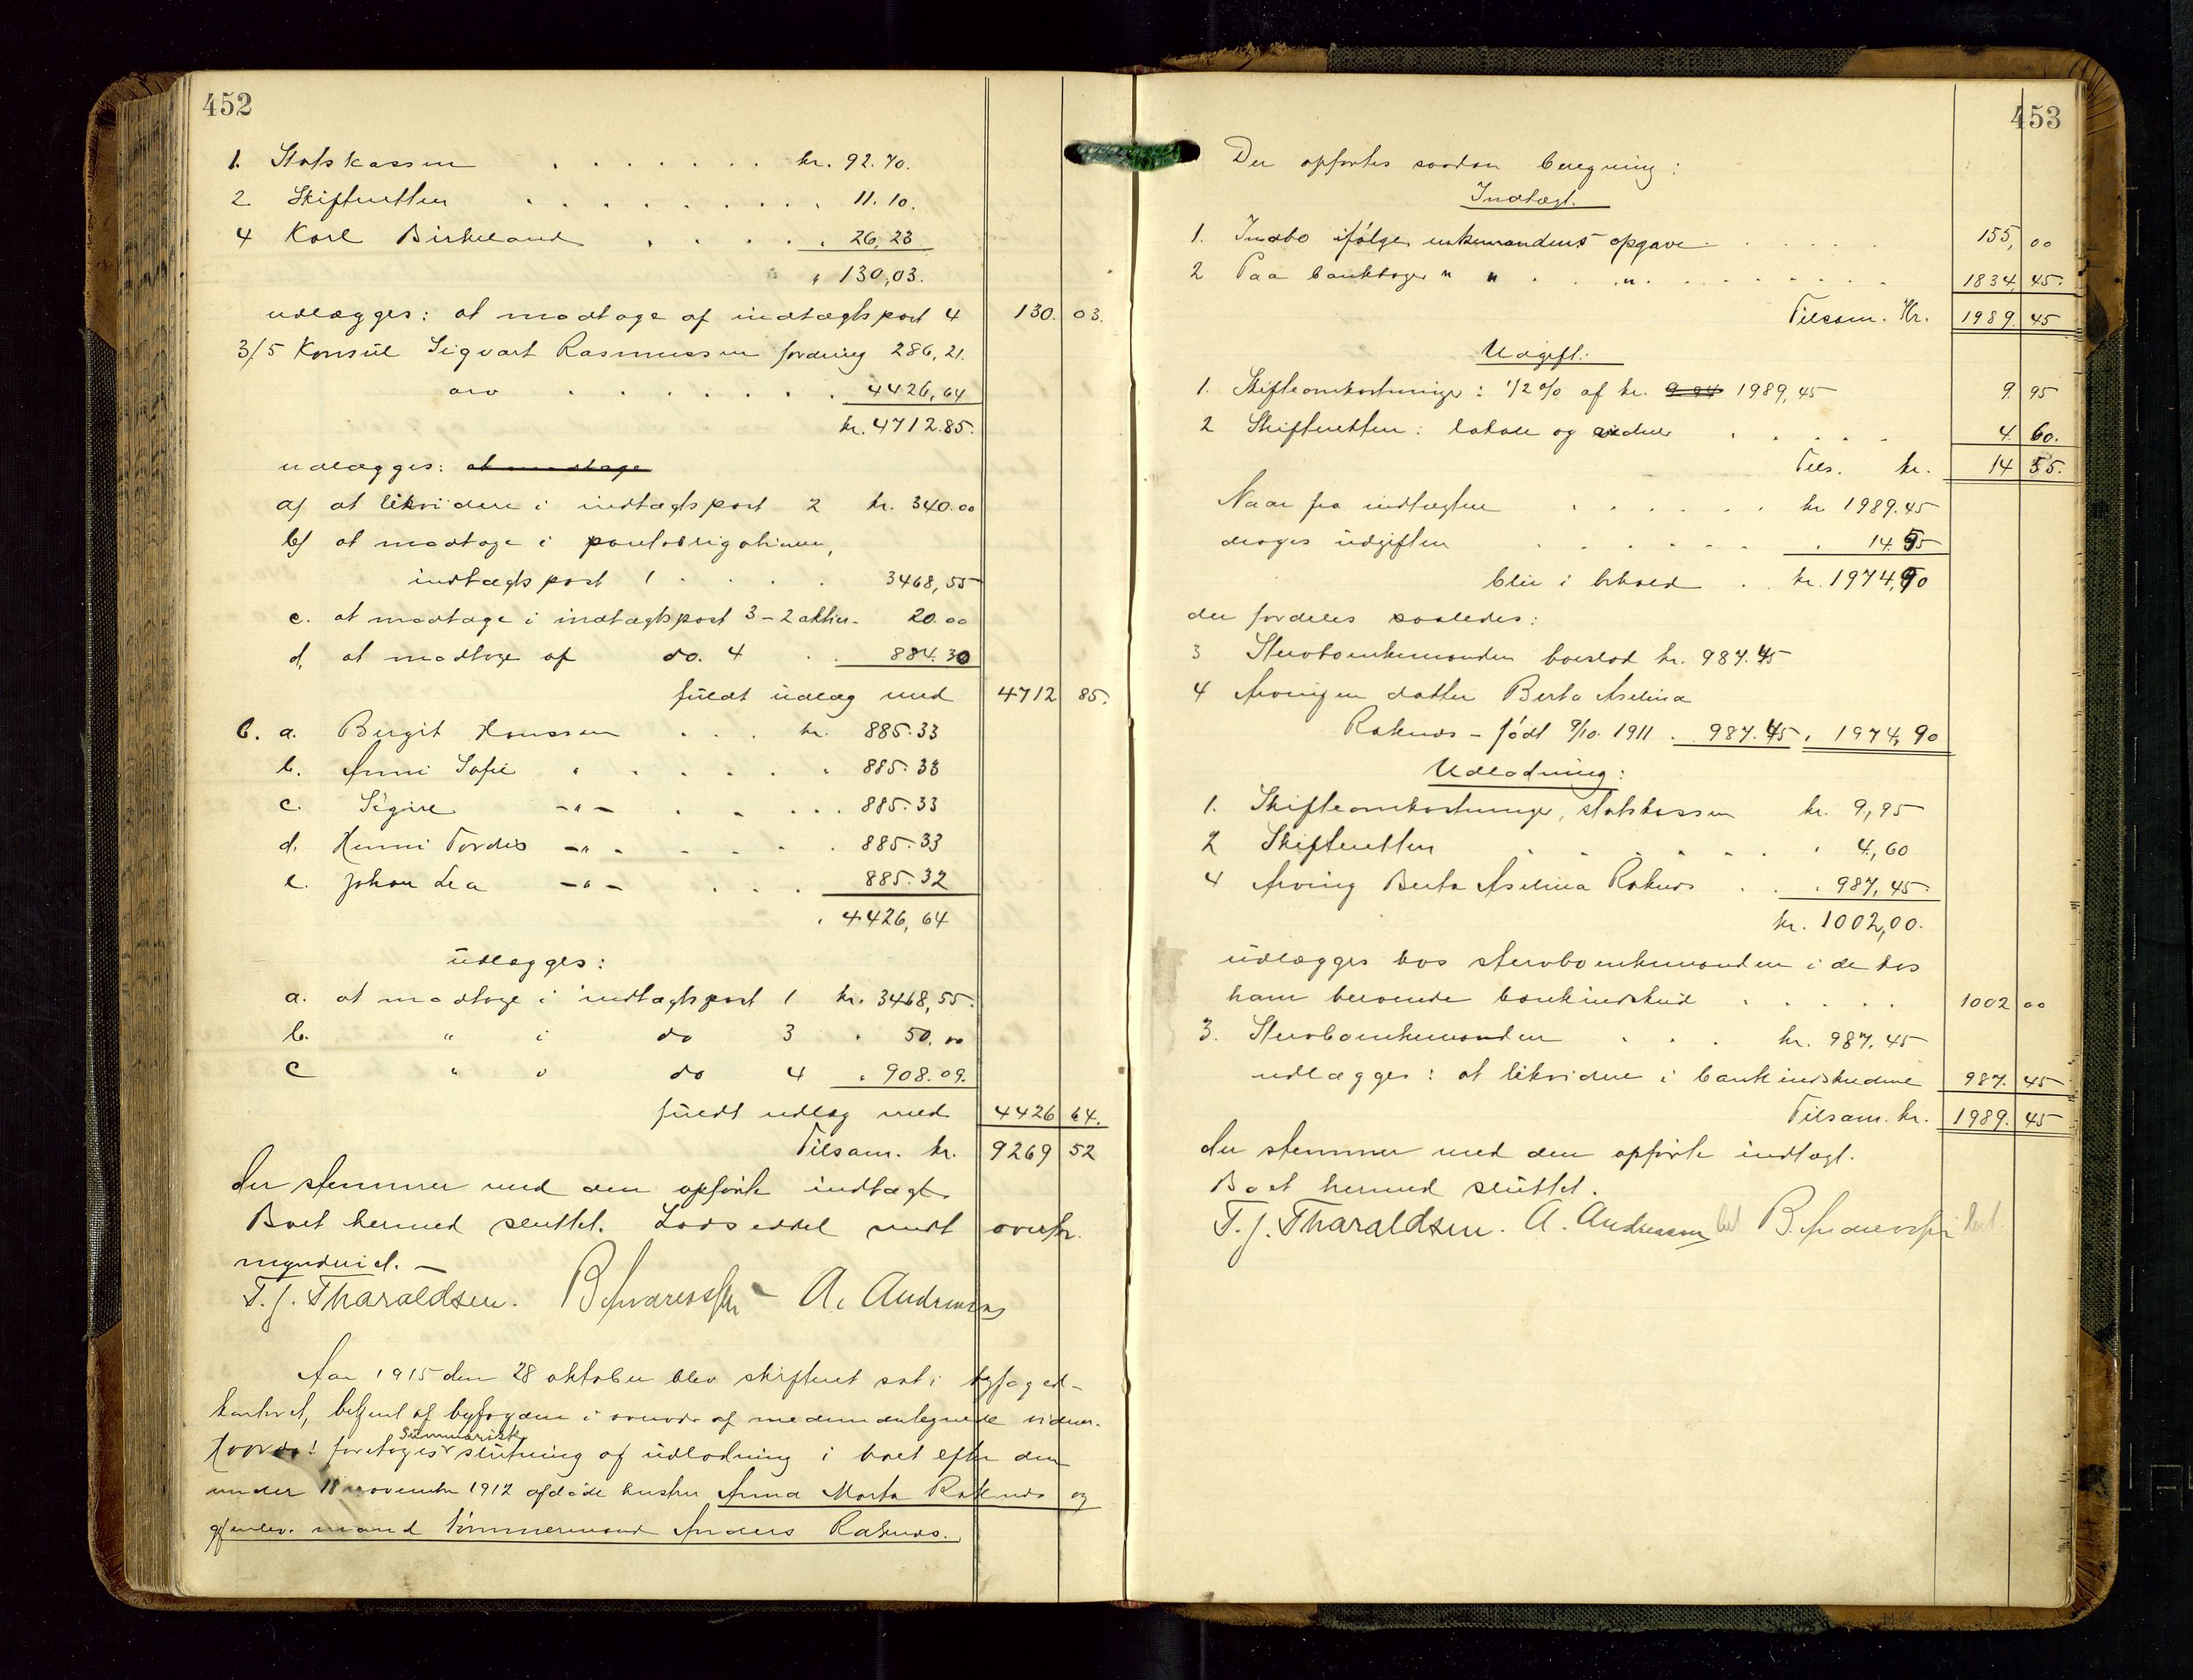 452
1. Statskassen . . . . . . . kr. 92.70.
2 Skifteretten . . . . . . . . . 11.10.
4 Karl Birkeland . . . . . 26,23
" 130,03.
udlægges: at modtage af indtægtspost 4 130. 03.
3/5 Konsul Sigvart Rasmussen fordring 286,21.
arv . . . . . . . 4426,64
kr. 4712.85.
udlægges: at modtage
a) at likvidere i indtægtspost 2 kr. 340.00
b) at modtage i pantobligationen,
indtægtspost 1 . . . . 3468,55
c. at modtage i indtægtspost 3 - 2 aktier - 20.00
d, at modtage af do. 4 . . 884.30
fuldt udlæg med 4712 85.
6. a. Birgit Hanssen . . . kr. 885.33
b. Anni Sofie " . . . . . 885.33
c. Signe -"- . . . . . 885.33
d. Henni Tordis -"- . . . . 885.33
e. Johan Lea -"- . . . 885.32
" 4426,64
udlægges:
a. at modtage i indtægtspost 1 kr. 3468,55.
b. " i do 3 " 50.00
c " " do 4 " 908.09.
fuldt udlæg med 4426 64.
Tilsam. kr. 9269 52
der stemmer med den opførte indtægt.
Boet hermed sluttet. Lodseddel sendt overfor-
mynderiet. —
T. J. Tharaldsen. B. Andreassen A. Andreassen
Aar 1915 den 28 oktober blev skifteret sat i byfoged-
kontoret, betjent af byfogden i overvær af medundertegnede vidner.
Hvorda! foretoges summarisk slutning og udlodning i boet efter den
under 18 november 1912 afdøde hustru Anna Marta Raknes og
gjenlev. mand tømmermand Anders Raknes.
453
Der opførtes saadan beregning:
Indtægt.
1. Indbo ifølge enkemandens opgave . . . . . 155, 00
2 Paa bankbøger " " . . " . . . . . . . 1834, 45.
Tilsam. Kr. 1989. 45
Udgift:
1. Skifteomkostninger: 1/2 % af kr. 9.94 1989,45 9. 95
2 Skifteretten: lokale og vidner . . . . . 4. 60.
Tils. kr. 14 55.
Naar fra indtægten . . . . . . kr 1989.45
drages udgiften . . . . . . 14.55
bliv i behold . . kr. 1974,90
der fordeles saaledes:
3 Stervboenkemanden boeslod kr. 987.45
4 Arvingen datter Berta Aselina
Raknes - født 9/10. 1911 . 987.45 " 1974,90
Udlodning:
1. Skifteomkostninger, statskassen kr. 9,95
2 Skifteretten . . . . . . " 4,60
4 Arving Berta Aselina Raknes . . " 987,45.
kr. 1002,00.
udlægges hos stervboenkemanden i de hos
ham beroende bankindskud . . . . . 1002 00
3. Stervboenkemanden . . . kr. 987.45
udlægges: at likvidere i bankindskudene 987. 45
Tilsam. kr. 1989. 45
der stemmer med den opførte indtægt.
Boet hermed sluttet.
T. J. Tharaldsen. A. Andreassen B. Andreassen